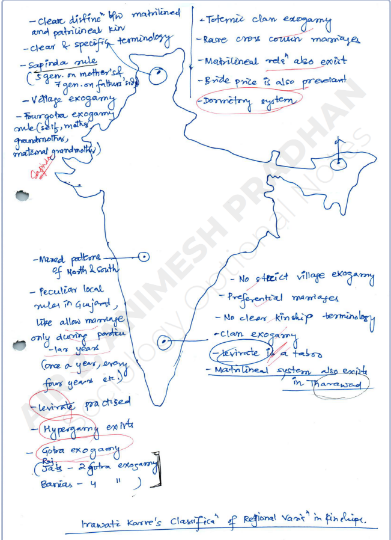 - Clear distincn b/w matrilineal
and patrilineal kin
- Clear & specific terminology
- Sapinda rule
(5 gen. on mother's &
7 gen. on father's side)
- Village exogamy
- Fourgotra exogamy
rule (self, mother,
grandmother,
maternal grandmother)
- Totemic clan exogamy
- Rare cross cousin marriages
- Matrilineal relsn also exist
- Bride price is also prevalent
- Dormitory system
- Mixed patterns
of North & South
- Peculiar local
rules in Gujarat,
like allow marriage
only during particu
-lar years
(once a year, every
four years etc.)
- Levirate practised
- Hypergamy exists
- Gotra exogamy
(Jats - 2 Gotra exogamy
Banias - 4 " )
- No strict village exogamy
- Preferential marriages
- No clear kinship terminology
- Clan exogamy
- Levirate is a taboo
- Matrilineal system also exists
in Tharawad
Irawati Karve's Classifican of Regional Varin in Kinships.
ANIMESH PRADHAN